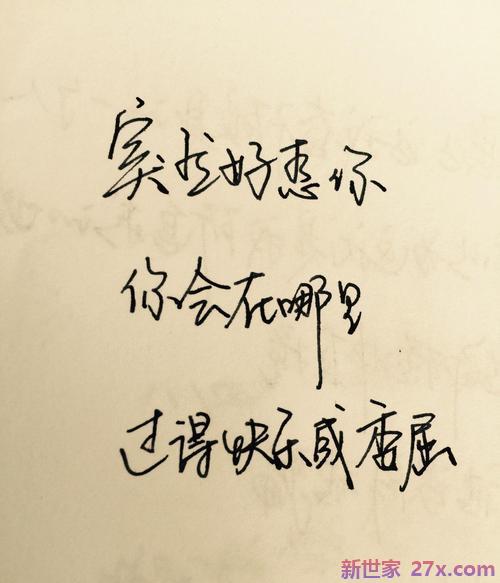 突然好想你
你会在哪里
过得快乐或委屈
新世家 27x.com